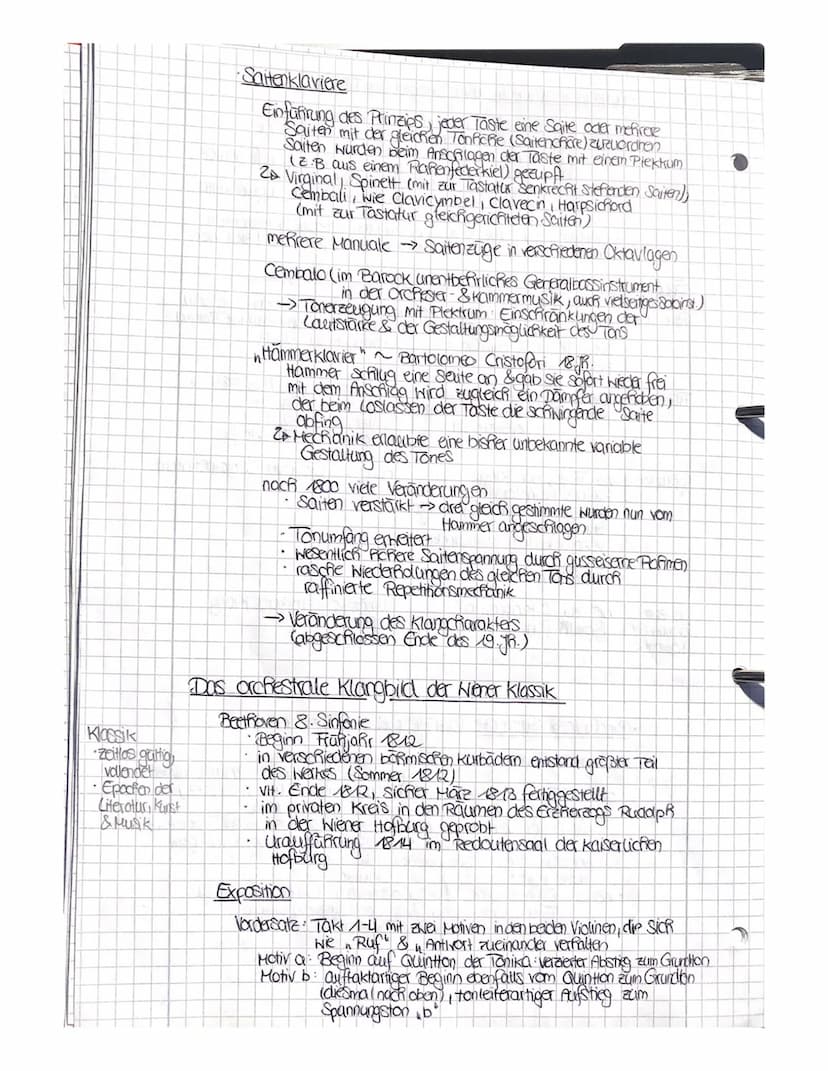 · Saitenklaviere
Einführung des Prinzips, jeder Taste eine Saite oder mehrere
Saiten mit der gleichen Tonhöhe (Saitenchöre) zuzuordnen
Saiten wurden beim Anschlagen der Taste mit einem Plektrum
(z.B aus einem Rabenfederkiel) gezupft
↳ Virginal, Spinett (mit zur Tastatur senkrecht stehenden Saiten),
Cembali, wie Clavicymbel, Clavecin, Harpsichord
(mit zur Tastatur gleichgerichteten Saiten)
mehrere Manuale → Saitenzüge in verschiedenen Oktavlagen
Cembalo (im Barock unentbehrliches Generalbassinstrument
in der Orchester- & Kammermusik, auch vielseitiges Soloinst.)
→ Tonerzeugung mit Plektrum: Einschränkungen der
Lautstärke & der Gestaltungsmöglichkeit des Tons
„Hammerklavier" ~ Bartolomeo Cristofori 18.Jh.
Hammer schlug eine Seute an & gab sie sofort wieder frei
mit dem Anschlag wird zugleich ein Dämpfer angehoben,
der beim Loslassen der Taste die schwingende Saite
abfing
↳ Mechanik erlaubte eine bisher unbekannte variable
Gestaltung des Tones
nach 1800 viele Veränderungen
· Saiten verstärkt → drei gleich gestimmte wurden nun vom
Hammer angeschlagen
· Tonumfang erweitert
· wesentlich höhere Saitenspannung durch gusseiserne Rahmen
· rasche Wiederholungen des gleichen Tons durch
raffinierte Repetitionsmechanik
→ Veränderung des Klangcharakters
(abgeschlossen Ende des 19.Jh.)
Das orchestrale Klangbild der Wiener Klassik
Beethoven 8. Sinfonie
· Beginn Frühjahr 1812
· in verschiedenen böhmischen Kurbädern entstand größter Teil
des Werkes (Sommer 1812)
· vlt. Ende 1812, sicher März 1813 fertiggestellt
· im privaten Kreis in den Räumen des Erzherzogs Rudolph
in der Wiener Hofburg geprobt
· Uraufführung 1814 im Redoutensaal der kaiserlichen
Hofburg
Klassik
· zeitlos gültig,
vollendet
· Epochen der
Literatur, Kunst
& Musik
Exposition
Vordersatz: Takt 1-4 mit zwei Motiven in den beiden Violinen, die sich
wie „Ruf" & „Antwort" zueinander verhalten
Motiv a: Beginn auf Quintton der Tonika: verzierter Abstieg zum Grundton
Motiv b: auftaktartiger Beginn ebenfalls vom Quintton zum Grundton
(diesmal nach oben), tonleiterartiger Aufstieg zum
Spannungston „b"